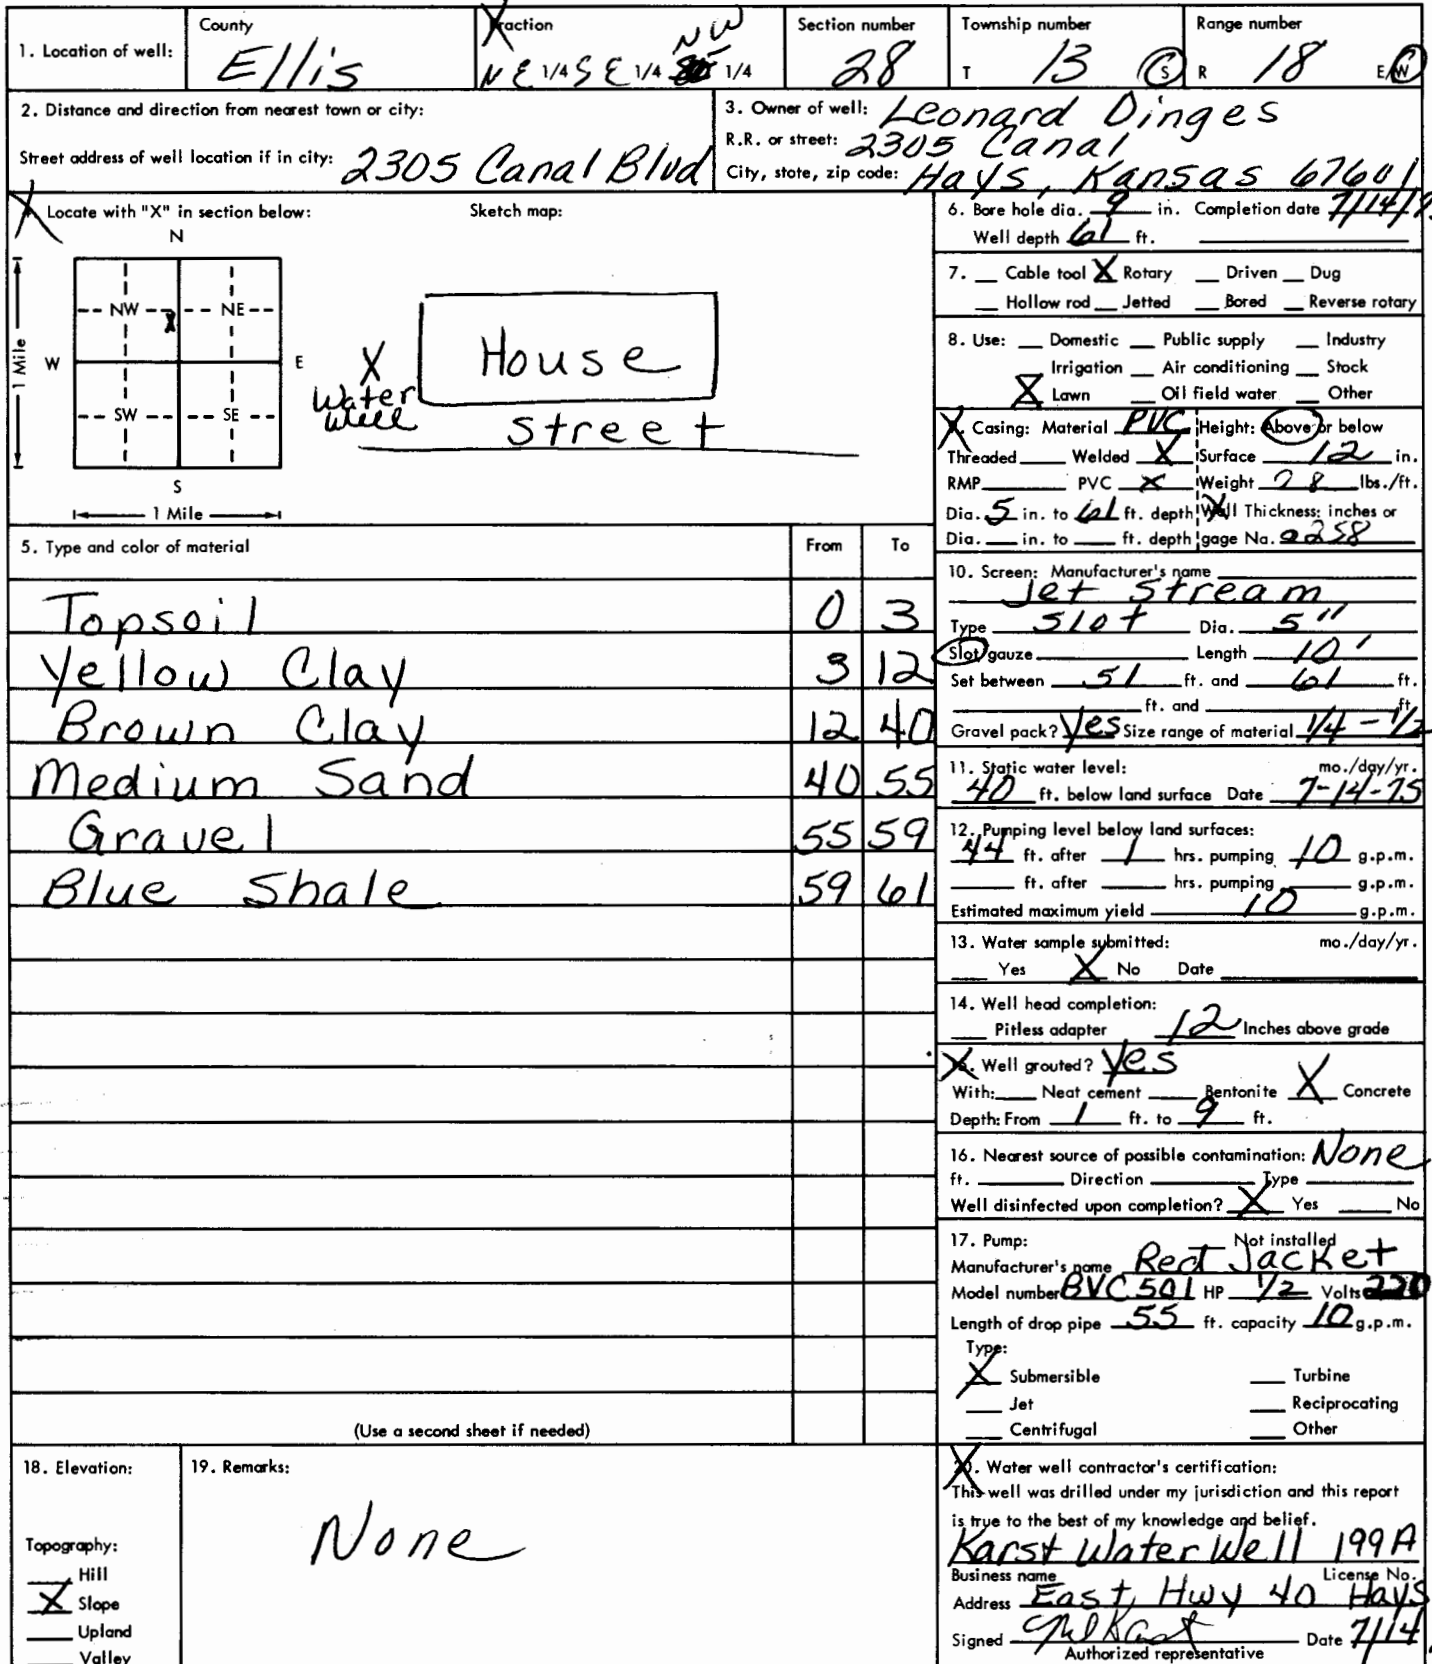 County
Fraction
Section number
Township number
Range number
1. Location of well:
Ellis
NE 1/4 SE 1/4 NW 1/4
28
T 13 S
R 18 E/W
2. Distance and direction from nearest town or city:
Street address of well location if in city: 2305 Canal Blvd
3. Owner of well: Leonard Dinges
R.R. or street: 2305 Canal
City, state, zip code: Hays, Kansas 67601
Locate with "X" in section below:
Sketch map:
N
NW NE
W E
SW SE
S
1 Mile
1 Mile
X
X
Water
Well
House
street
6. Bore hole dia. 9 in. Completion date 7/14/75
Well depth 61 ft.
7. Cable tool X Rotary Driven Dug
Hollow rod Jetted Bored Reverse rotary
8. Use: Domestic Public supply Industry
Irrigation Air conditioning Stock
X Lawn Oil field water Other
Casing: Material PVC Height: Above or below
Threaded Welded X Surface 12 in.
RMP PVC X Weight 28 lbs./ft.
Dia. 5 in. to 61 ft. depth Wall Thickness: inches or
Dia. in. to ft. depth gage No. .258
5. Type and color of material From To
Topsoil 0 3
Yellow Clay 3 12
Brown Clay 12 40
Medium Sand 40 55
Gravel 55 59
Blue Shale 59 61
(Use a second sheet if needed)
10. Screen: Manufacturer's name
Jet Stream
Type Slot Dia. 5"
Slot/gauze Length 10'
Set between 51 ft. and 61 ft.
ft. and ft.
Gravel pack? Yes Size range of material 1/4 - 1/2
11. Static water level: mo./day/yr.
40 ft. below land surface Date 7-14-75
12. Pumping level below land surfaces:
44 ft. after 1 hrs. pumping 10 g.p.m.
ft. after hrs. pumping g.p.m.
Estimated maximum yield 10 g.p.m.
13. Water sample submitted: mo./day/yr.
Yes X No Date
14. Well head completion:
Pitless adapter 12 Inches above grade
Well grouted? Yes
With: Neat cement Bentonite X Concrete
Depth: From 1 ft. to 9 ft.
16. Nearest source of possible contamination: None
ft. Direction Type
Well disinfected upon completion? X Yes No
17. Pump: Not installed
Manufacturer's name Red Jacket
Model number BVC501 HP 1/2 Volts 220
Length of drop pipe 55 ft. capacity 10 g.p.m.
Type:
X Submersible Turbine
Jet Reciprocating
Centrifugal Other
18. Elevation:
Topography:
Hill
X Slope
Upland
Valley
19. Remarks:
None
20. Water well contractor's certification:
This well was drilled under my jurisdiction and this report
is true to the best of my knowledge and belief.
Karst Water Well 199A
Business name License No.
Address East Hwy 40 Hays
Signed Karst Date 7/14
Authorized representative